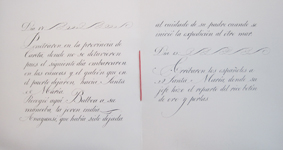 Día
Partieron en la provincia de
Careta donde no se detuvieron
pues el siguiente día embarcaron
en las canoas y el galeón que en
el puerto dejaron hacia Santa
María
Recogió aquí Balboa a su
la joven india
Anayansi, que había sido dejada
al cuidado de su padre cuando se
inició la expedición al otro mar.
Día
Arribaron los españoles a
Santa María donde su
jefe hace el reparto del rico botín
de oro y perlas